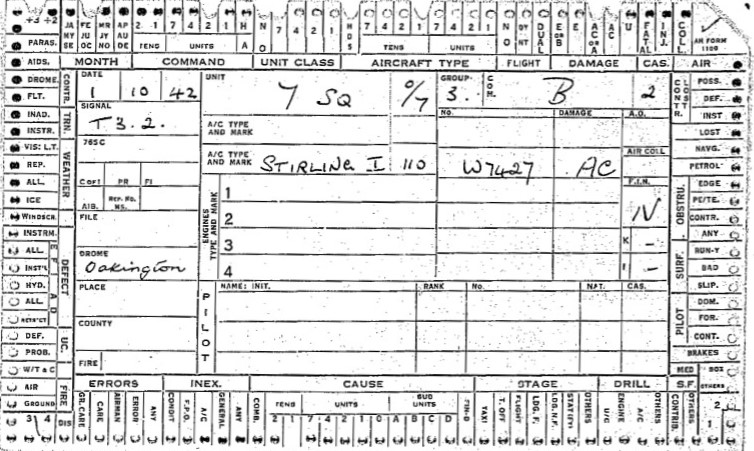 +3 +2 JA MY SE FE JU OC MR JY NO AP AU DE 2 1 7 4 2 1 H A N O 7 4 2 1 HDS 2 1 7 4 2 1 N O DY NT DUAL E or B E AC or A AC U FATAL INJ. COLL. AM FORM 1180
PARAS. TENS UNITS TENS UNITS
AIDS. MONTH COMMAND UNIT CLASS AIRCRAFT TYPE FLIGHT DAMAGE CAS. AIR
DROME. CONTR. DATE UNIT GROUP COR. CONSTR. CLOSTD POSS.
FLT. 1 10 42 7 SQ 0/7 3. B 2 DEF.
INAD. TRN. SIGNAL NO. DAMAGE A.O. INST
INSTR. T 3.2. A/C TYPE AND MARK LOST
VIS: L.T. WEATHER 765C AIR COLL NAVG.
REP. A/C TYPE AND MARK STIRLING I 110 W7427 AC PETROL
ALL. C of I PR FI F.I.N. OBSTRU. EDGE
ICE AIB. REP. NO. MS. ENGINES TYPE AND MARK 1 IV PE/TE.
WINDSCR. FILE 2 CONTR.
INSTRM. DEFECT ANY
ALL. DROME 3 K - SURF. RUN-Y
INST'L Oakington 4 I - BAD
HYD. PLACE PILOT NAME: INIT. RANK No. NAT. CAS. PILOT SLIP.
ALL. DOM.
COUNTY FOR.
DEF. UC. CONT.
PROB. FIRE BRAKES
W/T & C MED BOX
AIR FIRE ERRORS INEX. CAUSE STAGE DRILL S.F. OTHERS
GROUND GR.CARE CARE AIRMAN ERROR ANY CONDIT F.P.O. A/C GENERAL ANY COMB. TENS UNITS SUB UNITS FIN-D TAXI T. OFF FLIGHT LDG. F. LDG. R.F. STAT(FY) OTHERS U/C ENGINE A/C OTHERS CONTRIB. OTHERS 2
3 4 DIS 2 1 7 4 2 1 0 A B C D 1